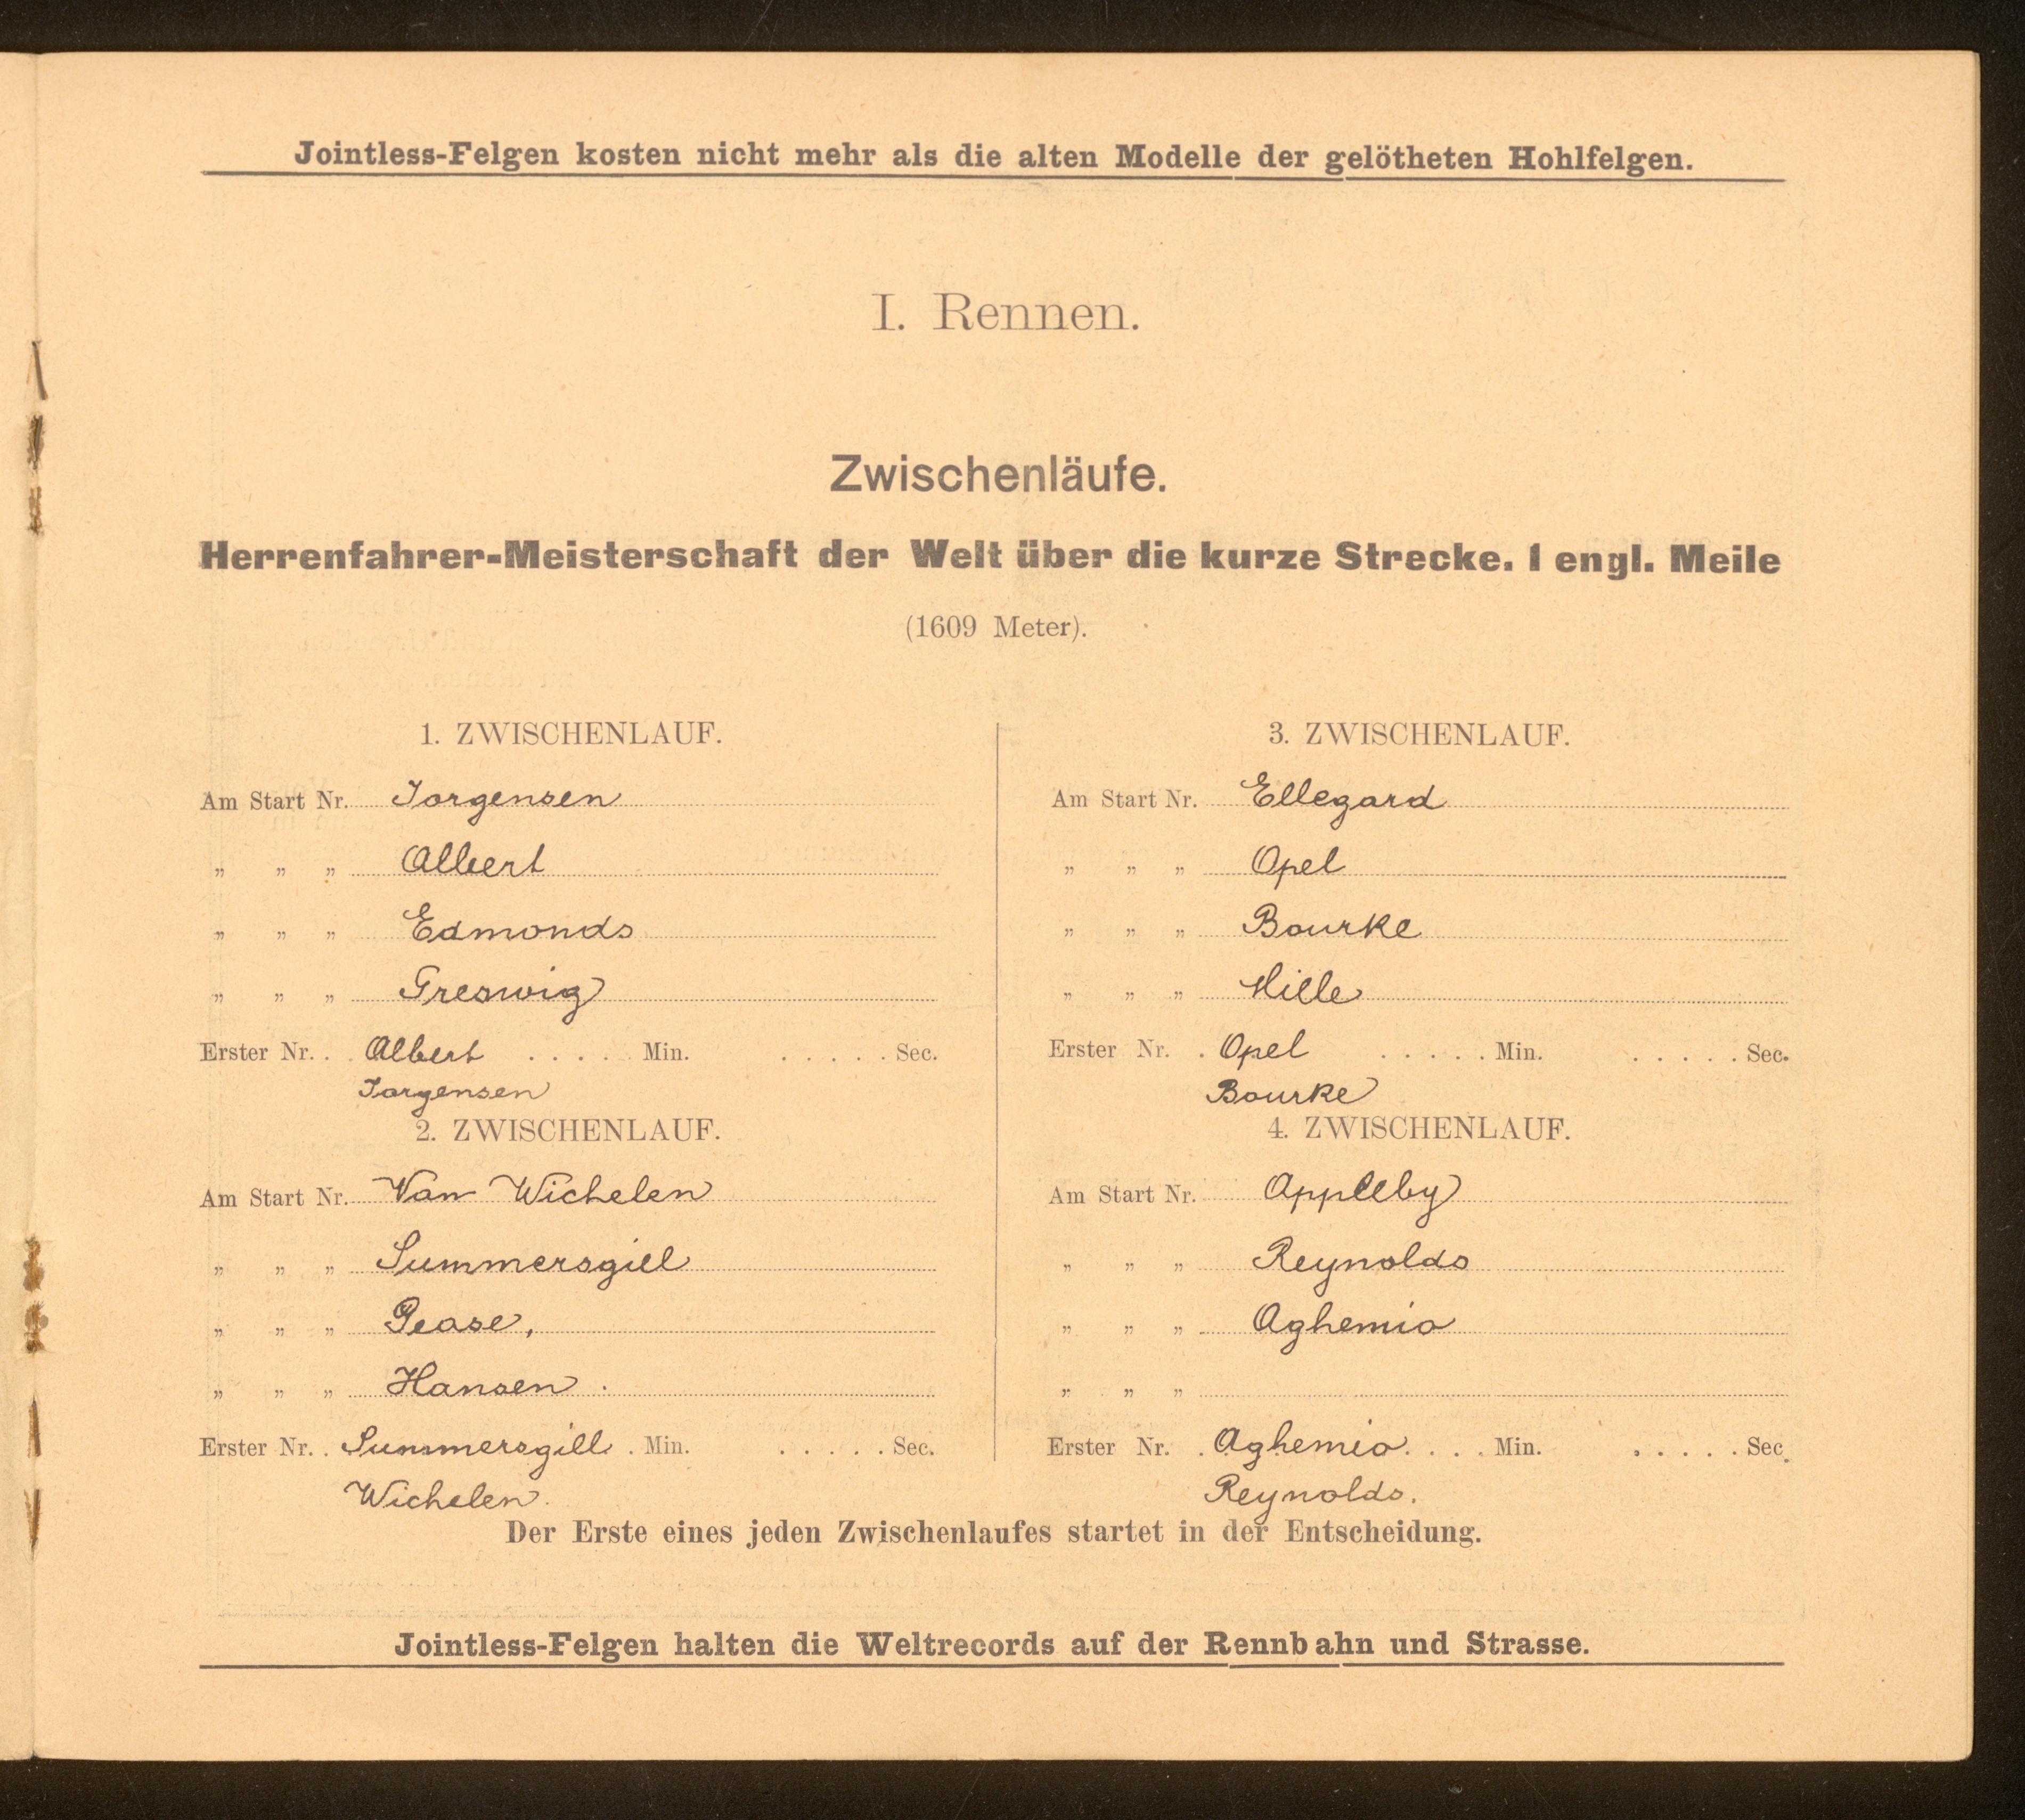 Jointless-Felgen kosten nicht mehr als die alten Modelle der gelötheten Hohlfelgen.
I. Rennen.
Zwischenläufe.
Herrenfahrer-Meisterschaft der Welt über die kurze Strecke. 1 engl. Meile
(1609 Meter).
1. ZWISCHENLAUF.
Am Start Nr. Jorgensen
„ „ „ Albert
„ „ „ Edmonds
„ „ „ Greswig
Erster Nr. . Albert . . . . . Min. . . . . . Sec.
Jorgensen
2. ZWISCHENLAUF.
Am Start Nr. Van Wichelen
„ „ „ Summersgill
„ „ „ Pease,
„ „ „ Hansen .
Erster Nr. . Summersgill . Min. . . . . . Sec.
Wichelen.
3. ZWISCHENLAUF.
Am Start Nr. Ellegard
„ „ „ Opel
„ „ „ Bourke
„ „ „ Mille
Erster Nr. . Opel . . . . . Min. . . . . . Sec.
Bourke
4. ZWISCHENLAUF.
Am Start Nr. Appleby
„ „ „ Reynolds
„ „ „ Aghemio
„ „ „
Erster Nr. . Aghemio . . . . Min. . . . . . Sec.
Reynolds.
Der Erste eines jeden Zwischenlaufes startet in der Entscheidung.
Jointless-Felgen halten die Weltrecords auf der Rennbahn und Strasse.